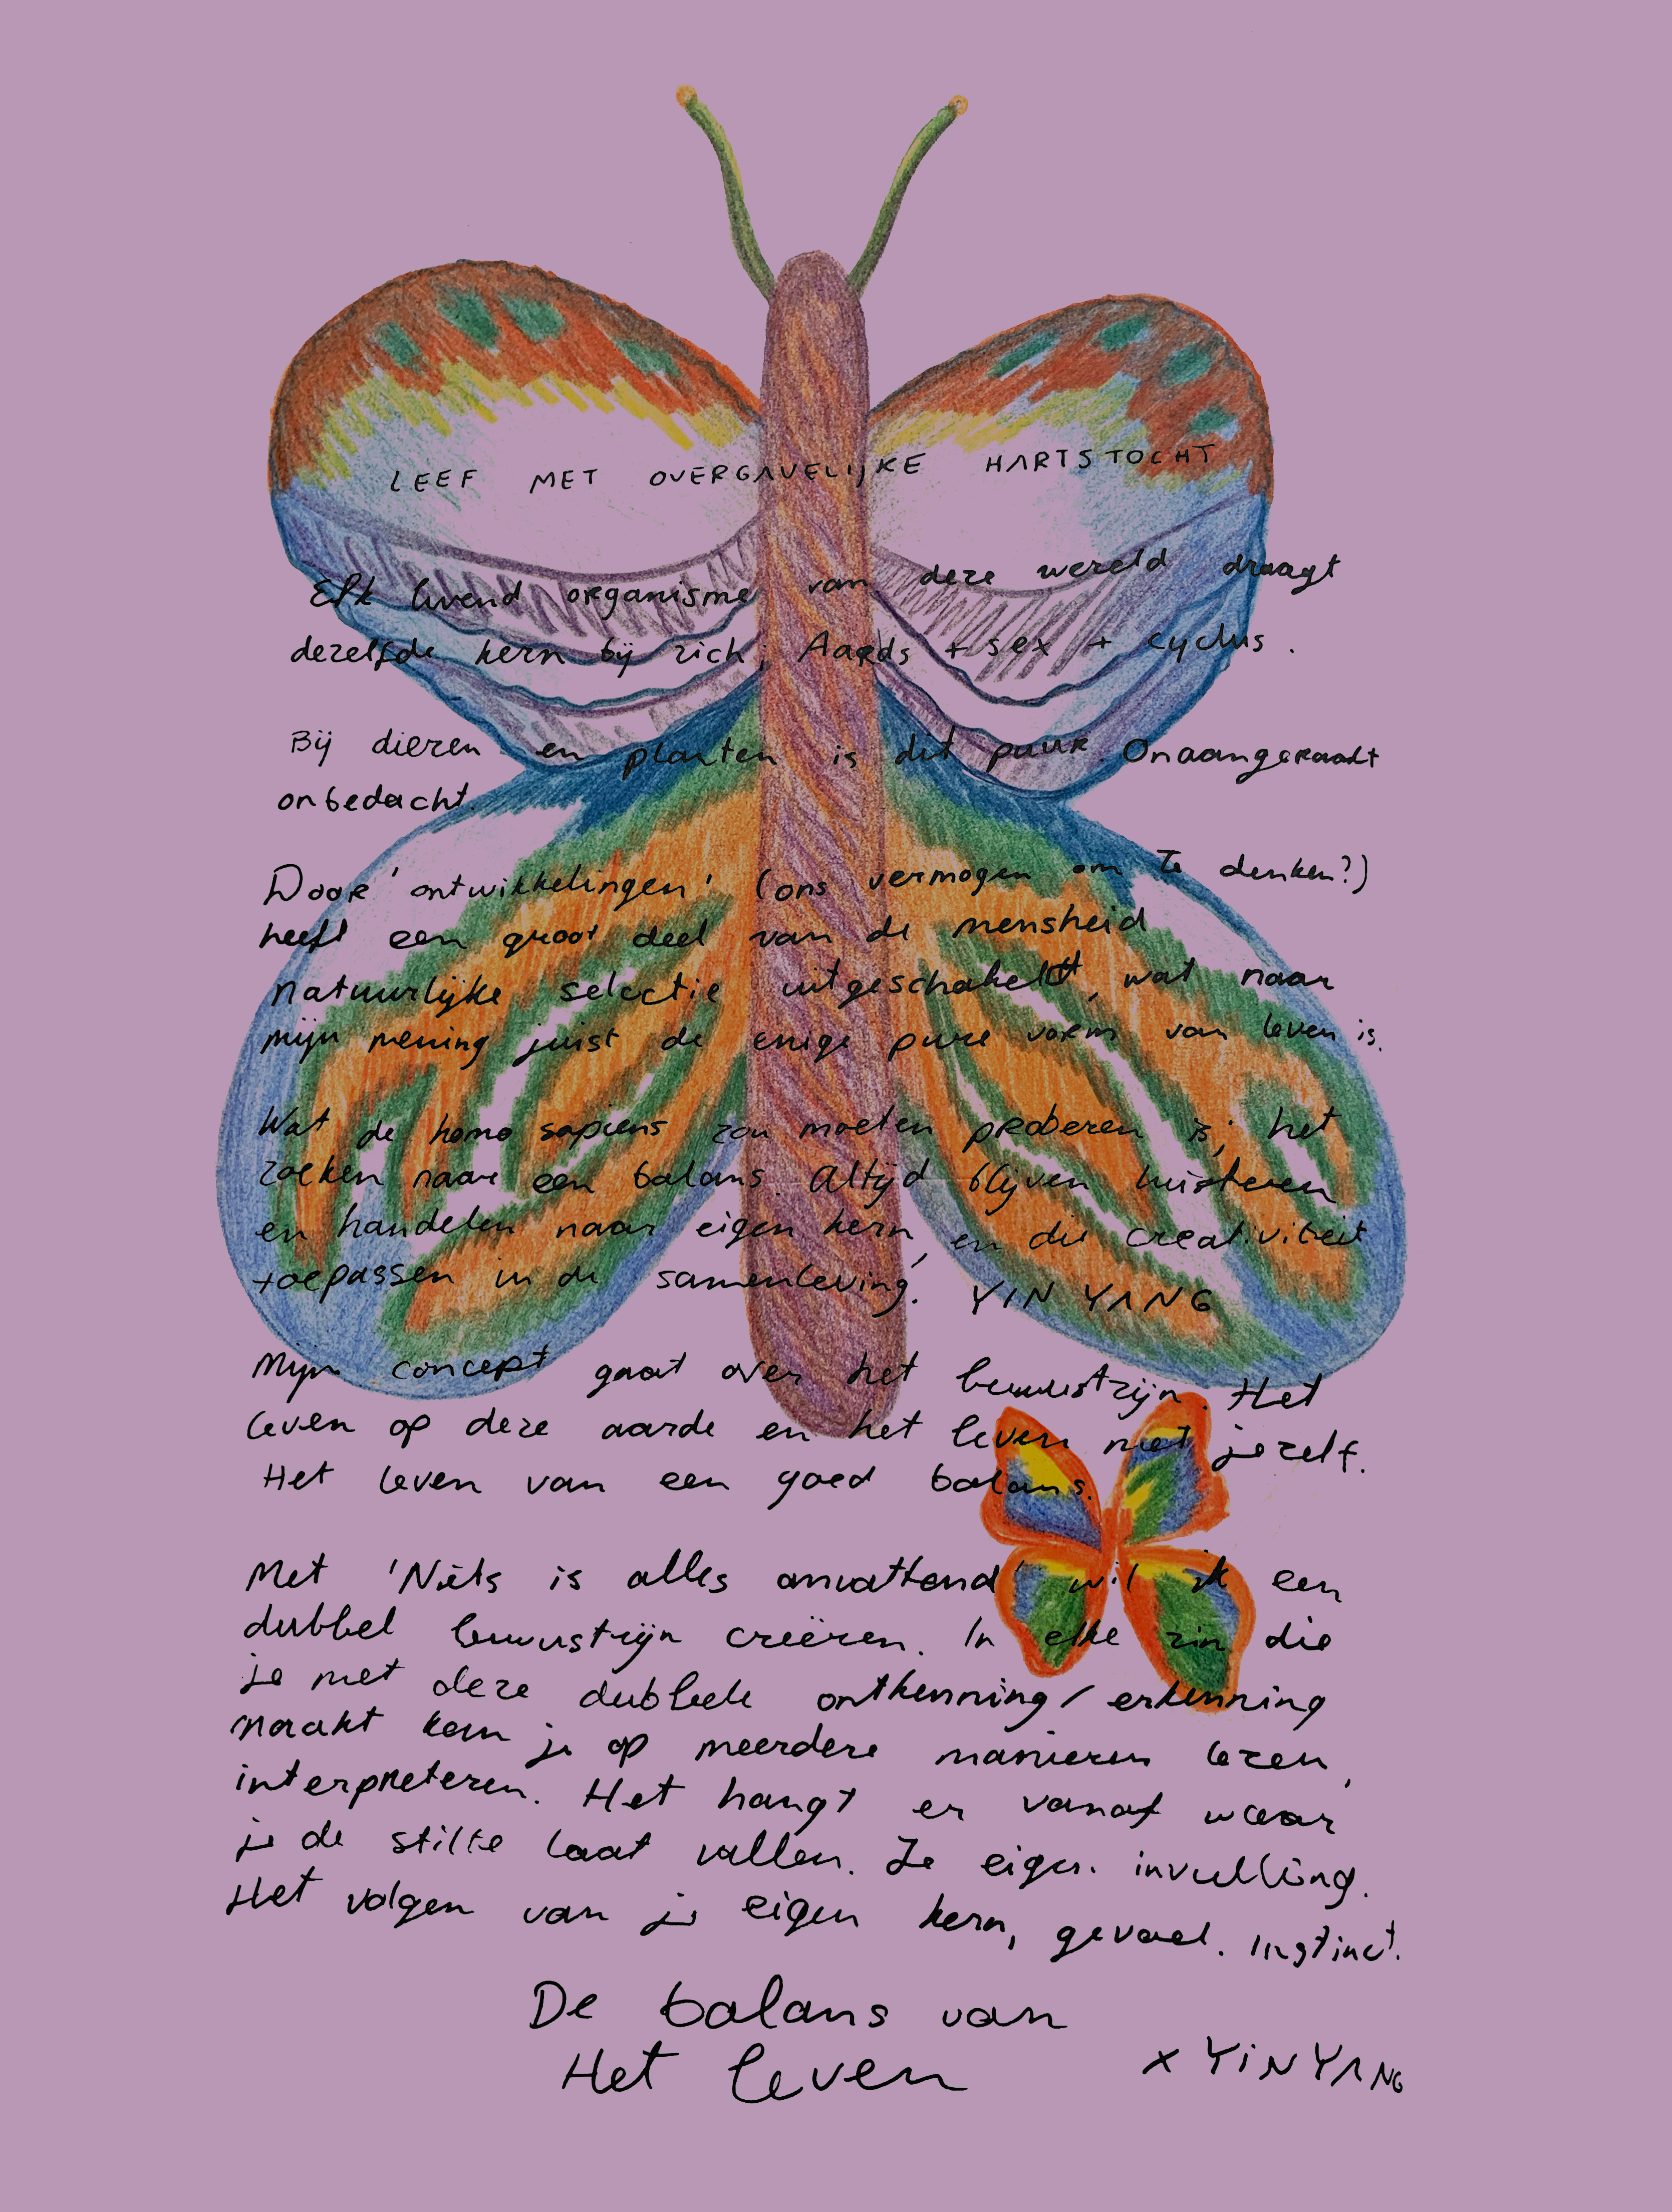 LEEF MET OVERGAVELIJKE HARTSTOCHT
Elk levend organisme van deze wereld draagt
dezelfde kern bij zich; Aards + sex + cyclus.
Bij dieren en planten is dit puur. Onaangeraakt
onbedacht.
Door 'ontwikkelingen' (ons vermogen om te denken?)
heeft een groot deel van de mensheid
natuurlijke selectie uitgeschakeld, wat naar
mijn mening juist de enige pure vorm van leven is.
Wat de homo sapiens zou moeten proberen is; het
zoeken naar een balans. Altijd blijven luisteren
en handelen naar eigen kern, en die creativiteit
toepassen in de samenleving. YIN YANG
Mijn concept gaat over het bewustzijn. Het
leven op deze aarde en het leven met jezelf.
Het leven van een goed balans.
Met 'Niets is alles omvattend' wil ik een
dubbel bewustzijn creëren. In elke zin die
je met deze dubbele ontkenning/erkenning
maakt kan je op meerdere manieren lezen,
interpreteren. Het hangt er vanaf waar
je de stilte laat vallen. Je eigen invulling.
Het volgen van je eigen kern, gevoel. Instinct.
De balans van
Het leven
x YiN YANG